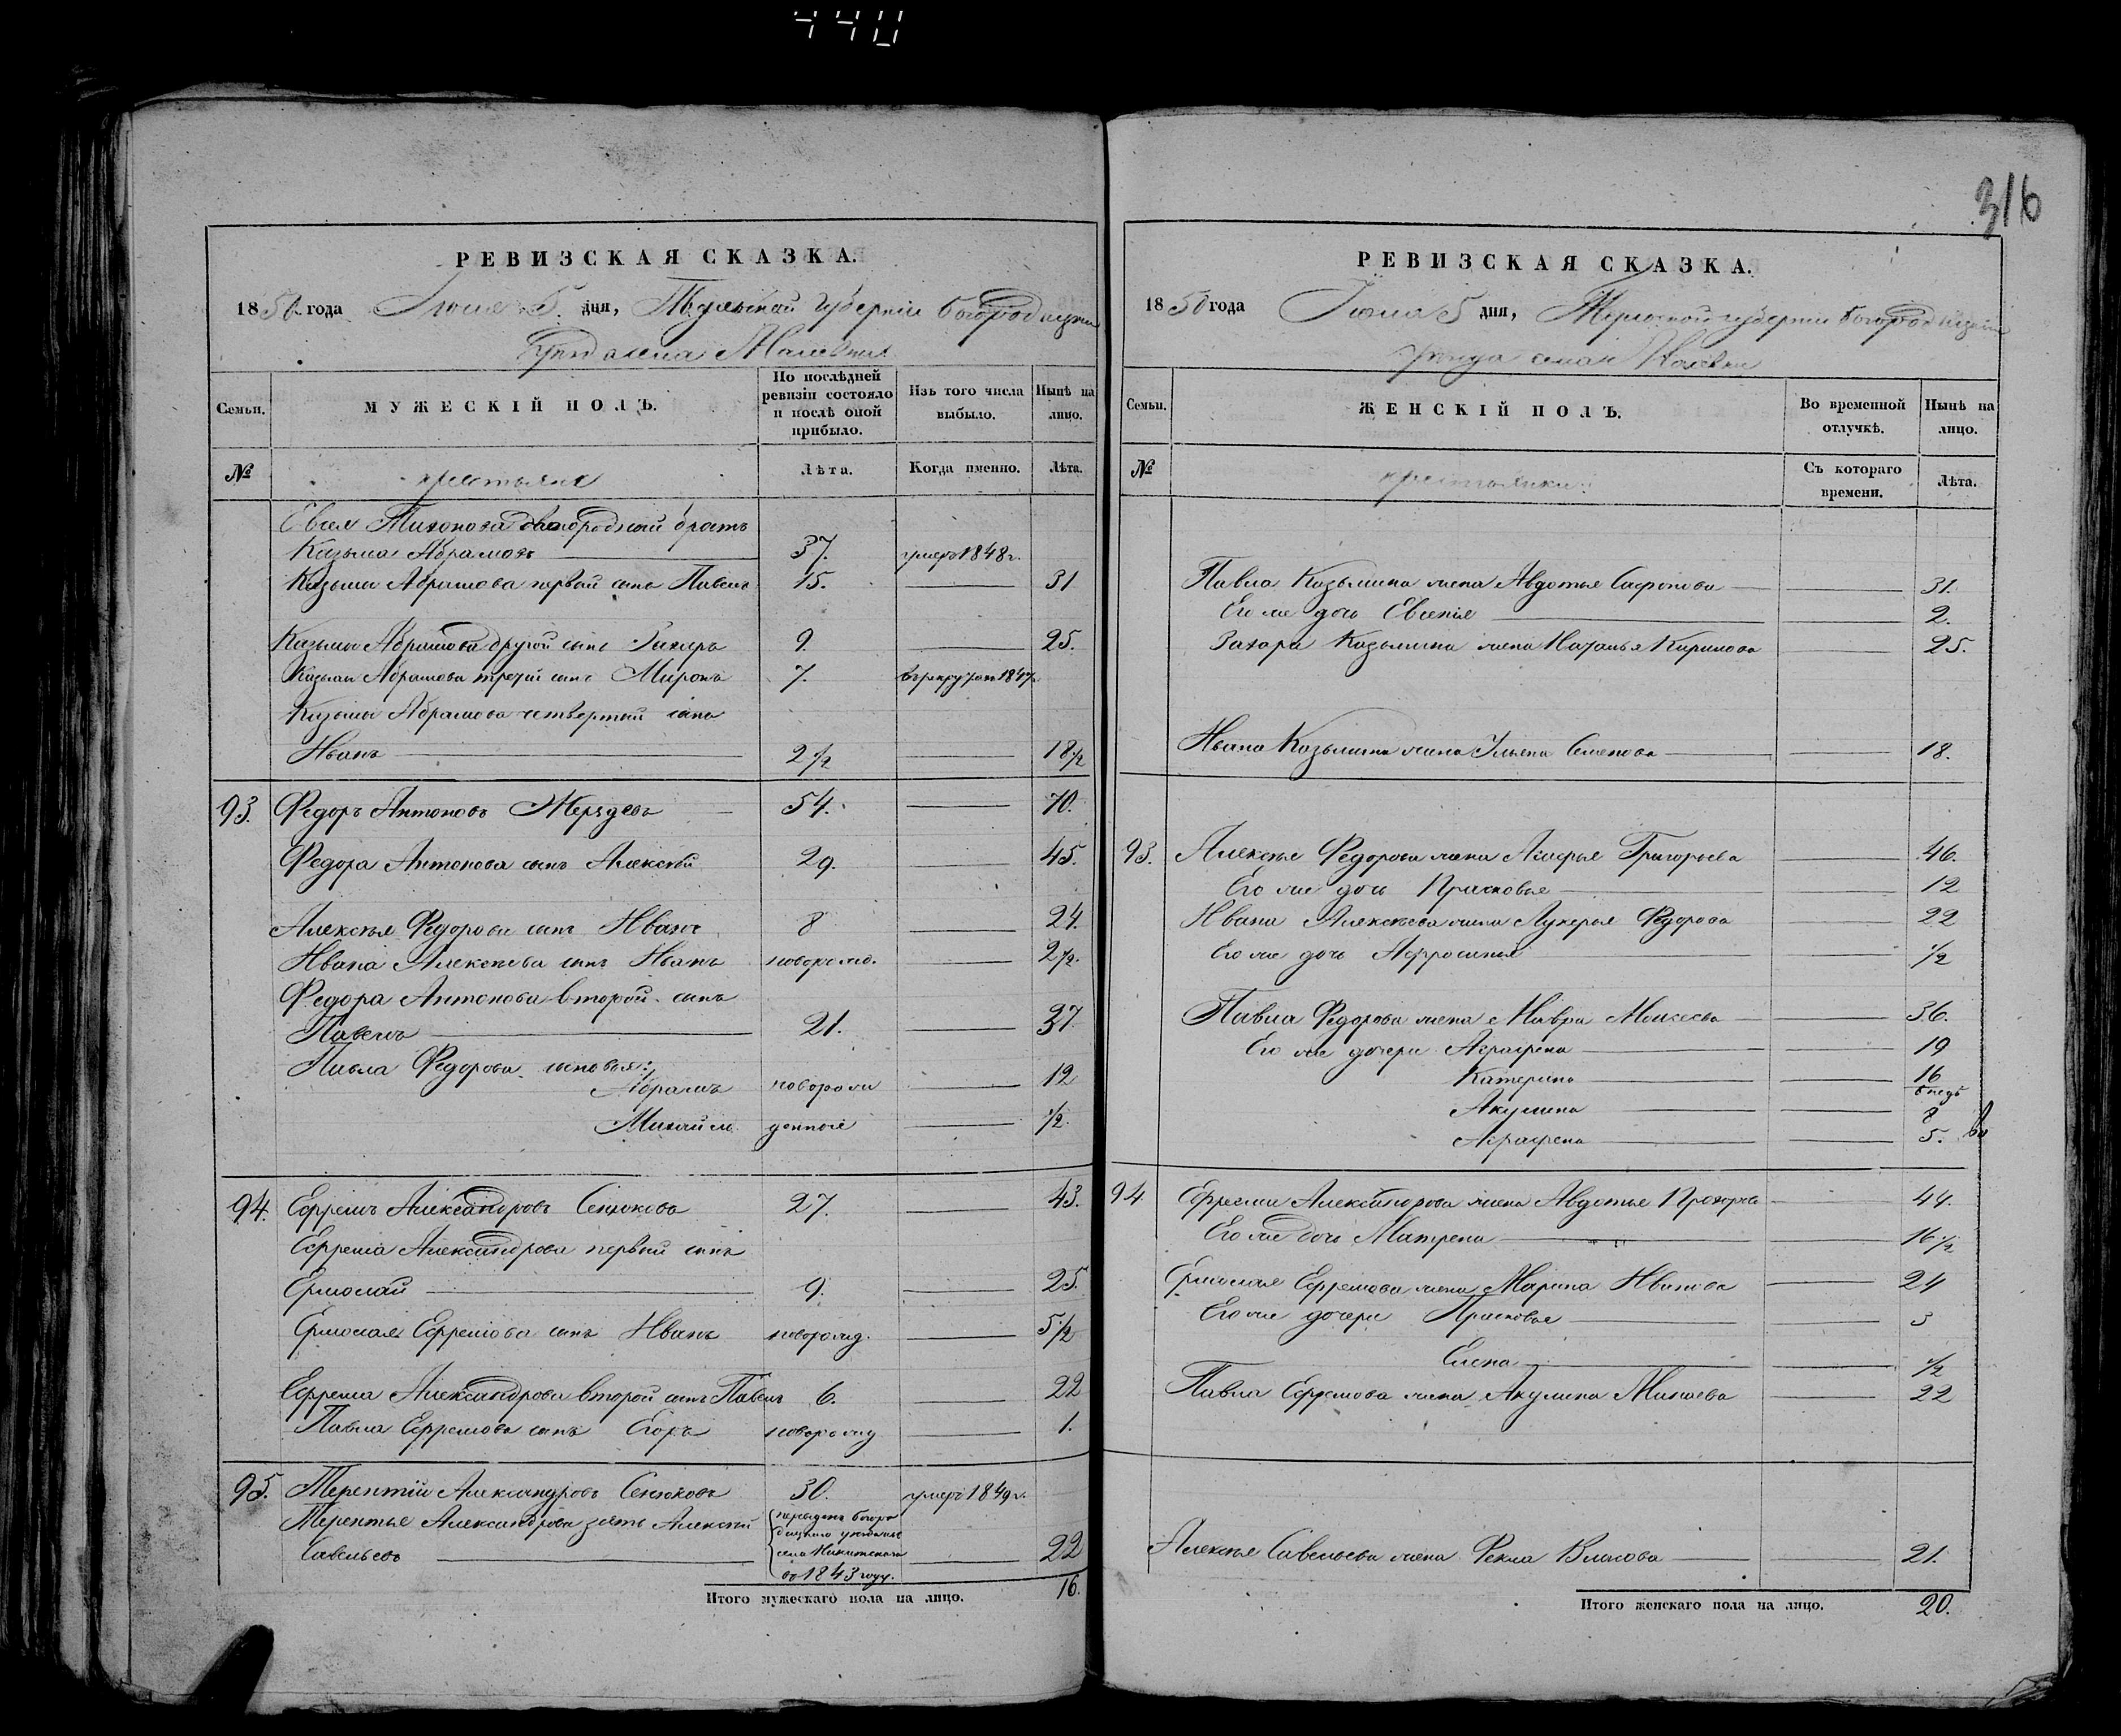 440
316
РЕВИЗСКАЯ СКАЗКА.
1850 года Июля 5 дня, Тульской губернии Богородицкаго
уезда села
Семьи.
МУЖЕСКІЙ ПОЛЪ.
По послѣдней ревизіи состояло и послѣ оной прибыло.
Изъ того числа выбыло.
Нынѣ на лицо.
№
крестьяне
Лѣта.
Когда именно.
Лѣта.
двоюродный братъ
Казьма Абрамовъ 37. умеръ 1848 г.
Казьмы Абрамова первый сынъ Павелъ 15. 31
Казьмы Абрамова другой сынъ Захаръ 9. 25.
Казьмы Абрамова третий сынъ Миронъ 7. въ рекруты 1847
Казьмы Абрамова четвертый сынъ
Иванъ 2 1/2 18 1/2
93. Федоръ Антоновъ 54. 70.
Федора Антонова сынъ Алексѣй 29. 45.
Алексѣя Федорова сынъ Иванъ 8 24.
Ивана Алексѣева сынъ Иванъ новорожд. 2 1/2.
Федора Антонова второй сынъ
Павелъ 21. 37
Павла Федорова сыновья:
Абрамъ новорож 12
Михаилъ денные 1/2.
94. Ефремъ Александровъ Сенюковъ 27. 43.
Ефрема Александрова первый сынъ
Ермолай 9. 25.
Ермолая Ефремова сынъ Иванъ новорожд. 5 1/2
Ефрема Александрова второй сынъ Павелъ 6. 22
Павла Ефремова сынъ Егоръ новорожд 1.
95. Терентий Александровъ Сенюковъ 30. умеръ 1849 г.
Терентья Александрова зять Алексѣй
Савельевъ 22
села Никитскаго
въ 1843 году.
Итого мужескаго пола на лицо. 16.
РЕВИЗСКАЯ СКАЗКА.
1850 года Июля 5 дня, Тульской губернии Богородицкаго
уезда села
Семьи.
ЖЕНСКІЙ ПОЛЪ.
Во временной отлучкѣ.
Нынѣ на лицо.
№
крестьянки
Съ котораго времени.
Лѣта.
Павла Козьмина жена Авдотья Сафонова 31.
Его же дочь Евгенія 2.
Захара Козьмина жена Наталья Кирилова 25.
Ивана Козьмина жена Ульяна Семенова 18.
93. Алексѣя Федорова жена Агафья Григорьева 46.
Его же дочь Прасковья 12
Ивана Алексѣева жена Лукерья Федорова 22
Его же дочь Афросинья 1/2
Павла Федорова жена Мавра Моисеева 36.
Его же дочери Аграфена 19
Катерина 16
Акулина 8
Аграфена 5.
94 Ефрема Александрова жена Авдотья Прохорова 44.
Его же дочь Матрена 16 1/2
Ермолая Ефремова жена Марина Иванова 24
Его же дочери Прасковья 3
Елена 1/2
Павла Ефремова жена Акулина Минаева 22
Алексѣя Савельева жена Фекла Власова 21.
Итого женскаго пола на лицо. 20.